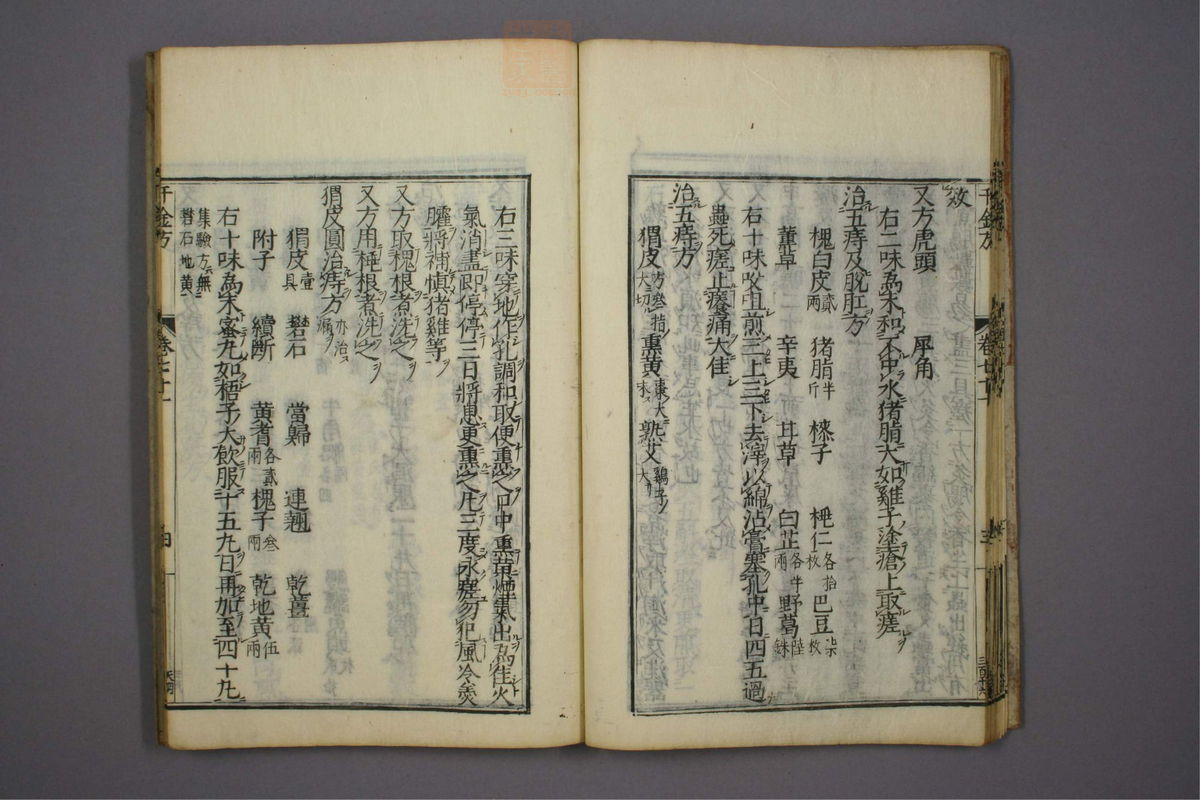 效
又方虎頭　犀角
右二味為末和不中水猪脂大如雞子塗瘡上取瘥
治五痔及脫肛方
槐白皮貳兩　猪脂半斤　槺子　桃仁各拾枚　巴豆
薰草　辛夷　甘草　白芷各半兩　野葛陸銖
右十味㕮咀煎三上三下去滓以綿沾膏塞孔中日四五過
蟲死瘥止癢痛大佳
治五痔方
猬皮方叁指大切　熏黃棗大末　熟艾鷄子大
右三味穿地作孔調和取便熏之口中熏黃煙氣出為佳火
氣消盡即停停三日將息更熏之凡三度永瘥勿犯風冷羹
臛將補慎猪雞等
又方取槐根煮洗之
又方用桃根煮洗之
猬皮圓治痔方亦治漏
猬皮壹具　礬石　當歸　連翹　乾薑
附子　續斷　黃耆各貳兩　槐子叁兩　乾地黃伍兩
右十味為末蜜丸如梧子大飲服十五丸日再加至四十丸
集驗方無
礬石地黃
千金方
卷七十一